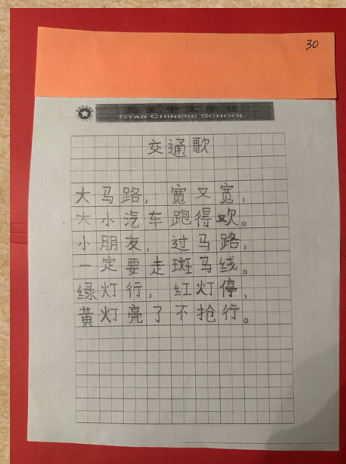 30
STAR CHINESE SCHOOL
交通歌
大马路，宽又宽，
大小汽车跑得欢。
小朋友，过马路，
一定要走斑马线。
绿灯行，红灯停，
黄灯亮了不抢行。